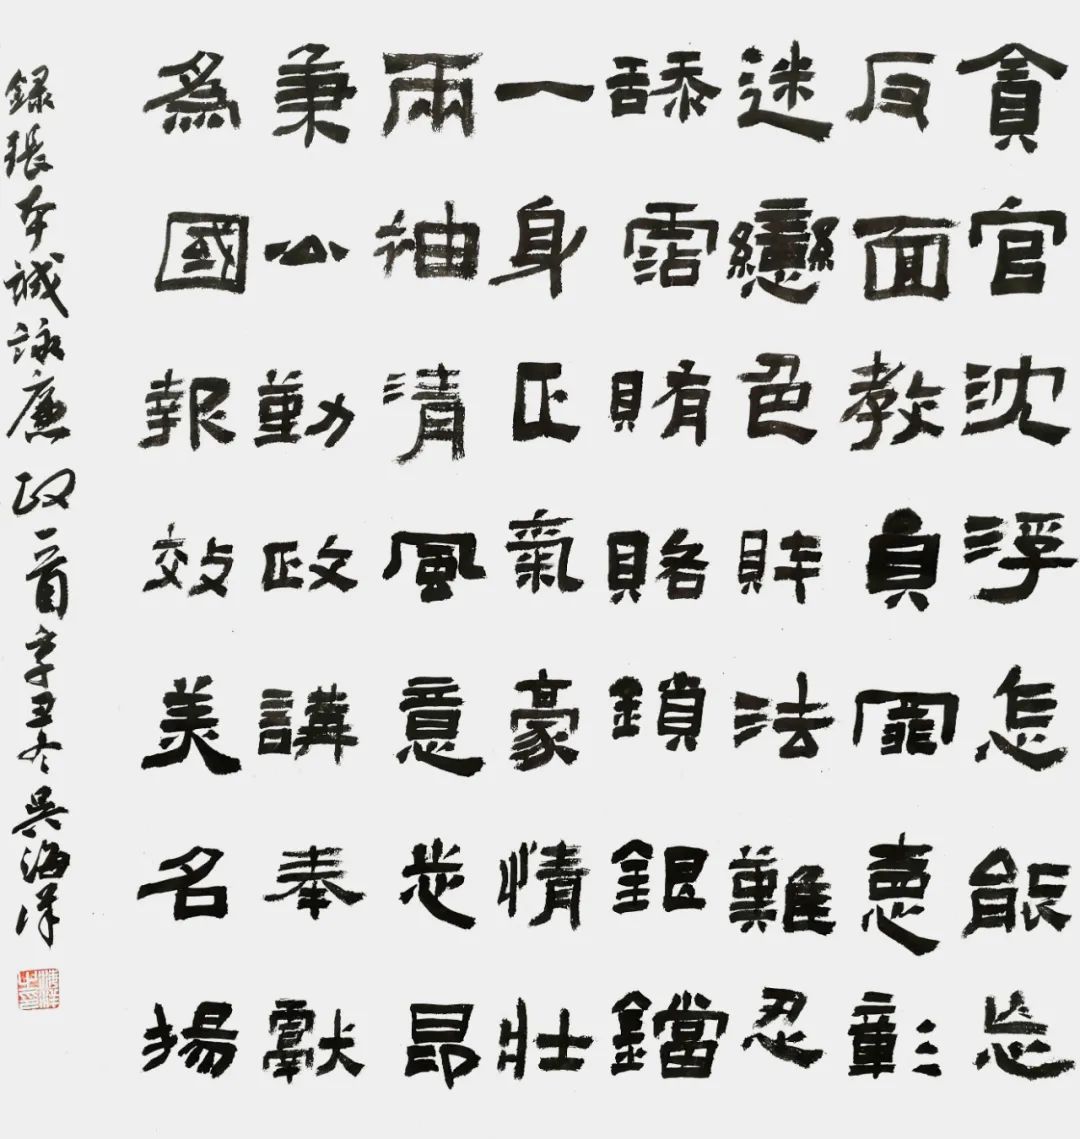 貪官沈浮怎能忘
反面教員罪惡彰
迷戀色財法難忍
舔霑賄賂鎖銀鐺
一身正氣豪情壯
兩袖清風意志昂
秉公勤政講奉獻
為國報效美名揚
録張本誠詠廉政一首辛丑冬吳海洋